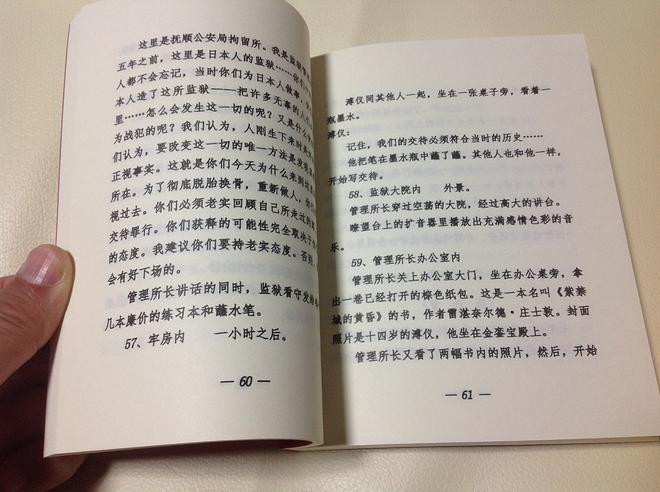 这里是抚顺公安局拘留所。我是监狱
五年之前，这里是日本人的监狱……你们
人都不会忘记，当时你们为日本人做事，
本人造了这所监狱——把许多无辜的人
里……怎么会发生这一切的呢？又是什么
为战犯的呢？我们认为，人刚生下来时
们认为，要改变这一切的唯一方法是发现
正视事实。这就是你们今天为什么来到
所在。为了彻底脱胎换骨，重新做人，你
视过去。你们必须老实回顾自己所走过的
交待罪行。你们获释的可能性完全取决于
的态度。我建议你们要持老实态度。否则
会有好下场的。
管理所长讲话的同时，监狱看守发给
几本廉价的练习本和蘸水笔。
57、牢房内 一小时之后。
— 60 —
溥仪同其他人一起，坐在一张桌子旁，看着一
瓶墨水。
溥仪：
记住，我们的交待必须符合当时的历史……
他把笔在墨水瓶中蘸了蘸。其他人也和他一样，
开始写交待。
58、监狱大院内 外景。
管理所长穿过空荡的大院，经过高大的讲台。
瞭望台上的扩音器里播放出充满感情色彩的音
乐。
59、管理所长办公室内
管理所长关上办公室大门，坐在办公桌旁，拿
出一卷已经打开的棕色纸包。这是一本名叫《紫禁
城的黄昏》的书，作者雷湛奈尔德·庄士敦。封面
照片是十四岁的溥仪，他坐在金銮宝殿上。
管理所长又看了两幅书内的照片，然后，开始
— 61 —